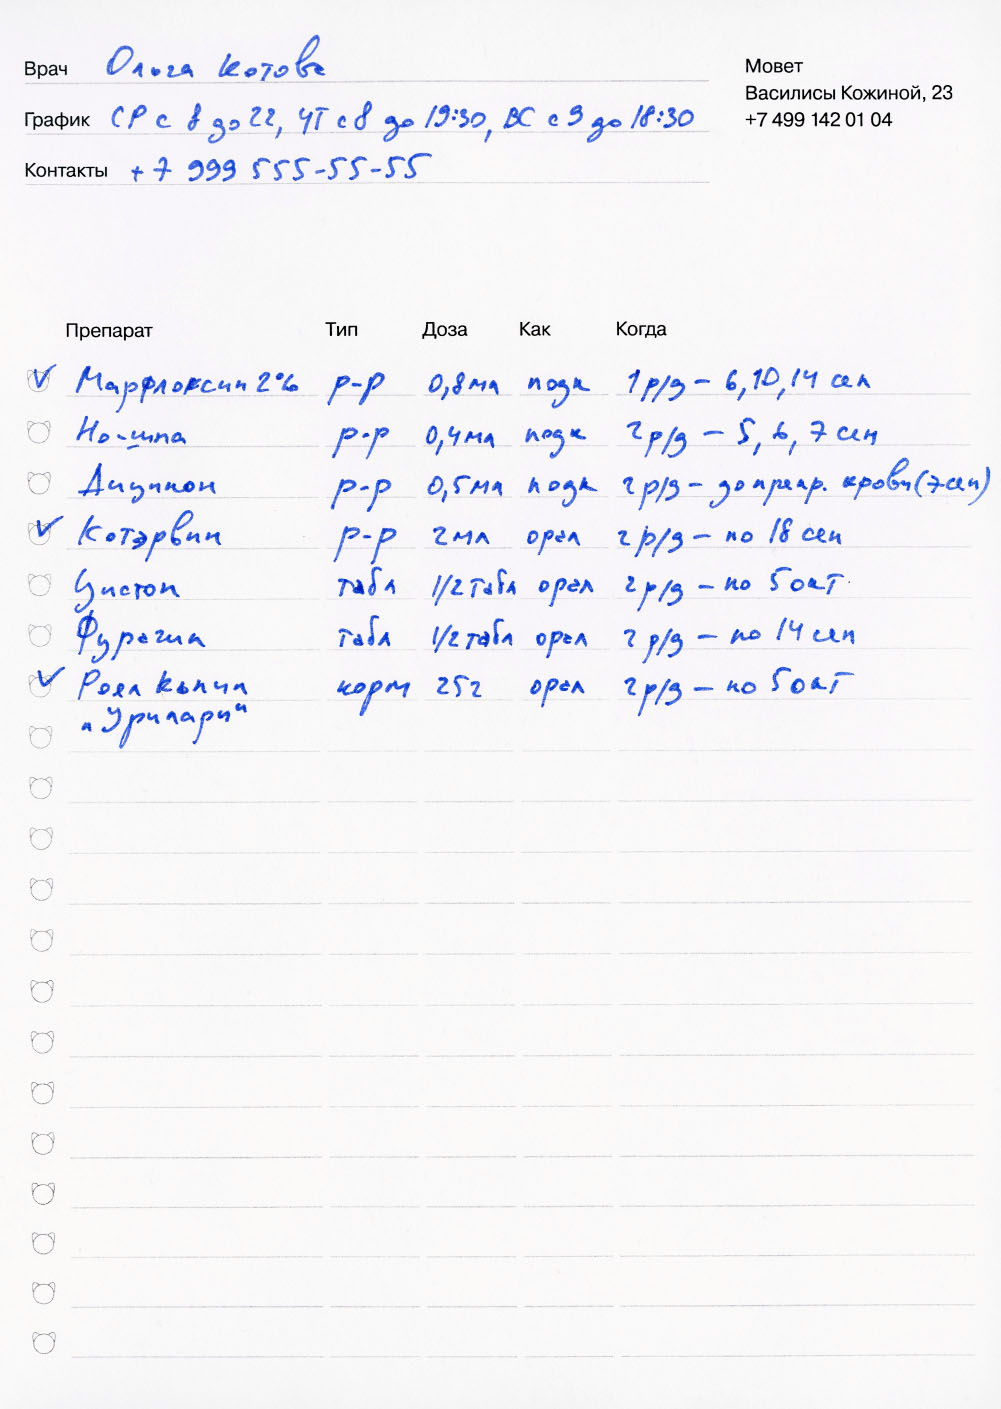 Врач Ольга Котова
График СР с 8 до 22, ЧТ с 8 до 19:30, ВС с 9 до 18:30
Контакты +7 999 555-55-55
Мовет
Василисы Кожиной, 23
+7 499 142 01 04
Препарат Тип Доза Как Когда
Марфлоксин 2% р-р 0,8 мл подк 1 р/д – 6, 10, 14 сен
Но-шпа р-р 0,4 мл подк 2 р/д – 5, 6, 7 сен
Дицинон р-р 0,5 мл подк 2 р/д – до прекр. крови (7 сен)
Котэрвин р-р 2 мл орал 2 р/д – по 18 сен
Цистон табл 1/2 табл орал 2 р/д – по 5 окт
Фурагин табл 1/2 табл орал 2 р/д – по 14 сен
Роял Канин корм 25 г орал 2 р/д – по 5 окт
"Уринари"